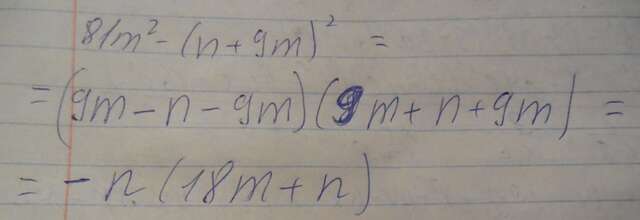 81m² - (n + 9m)² =
= (9m - n - 9m) (9m + n + 9m) =
= - n (18m + n)